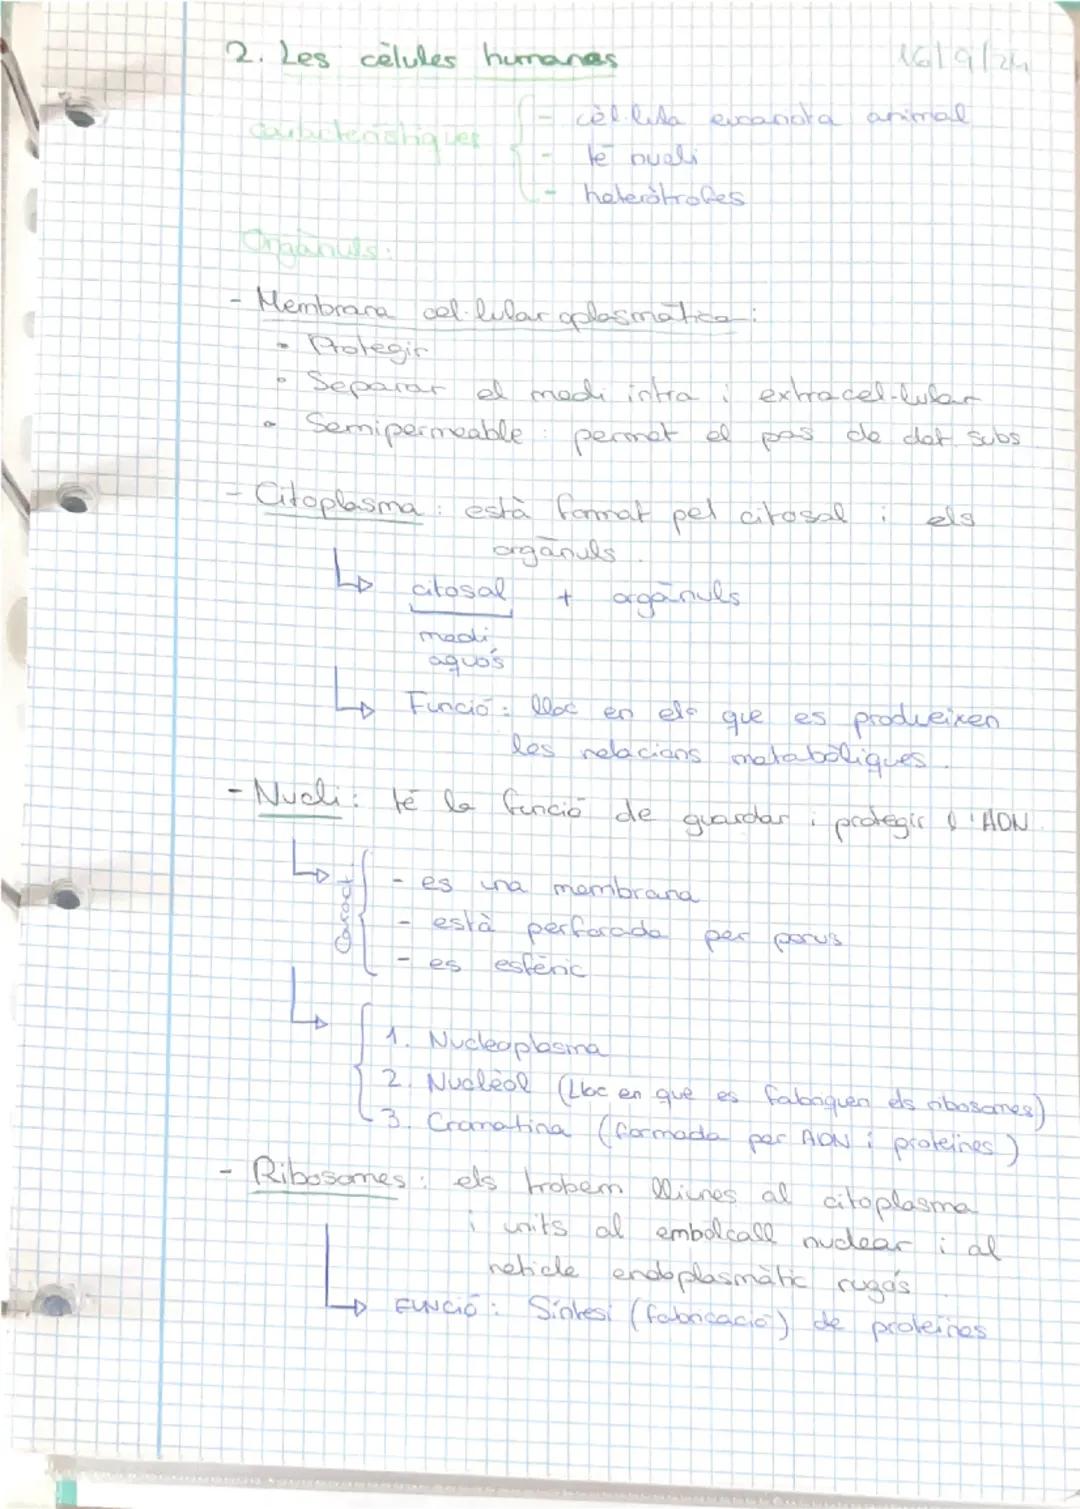 2. Les cèl·lules humanes 16/9/24
característiques
- cèl·lula eucariota animal
- té nucli
- heteròtrofes
Orgànuls:
- Membrana cel·lular o plasmàtica:
• Protegir
• Separar el medi intra i extracel·lular
• Semipermeable: permet el pas de det. subs
- Citoplasma: està format pel citosol i els
orgànuls.
citosol + orgànuls
medi
aquós
Funció: lloc en els que es produeixen
les relacions metabòliques.
- Nucli: té la funció de guardar i protegir l'ADN.
Caract.
- es una membrana
- està perforada per porus
- es esfèric
1. Nucleoplasma
2. Nuclèol (Lloc en que es fabriquen els ribosomes)
3. Cromatina (formada per ADN i proteïnes)
- Ribosomes: els trobem lliures al citoplasma
i units al embolcall nuclear i al
reticle endoplasmàtic rugós.
FUNCIÓ: Síntesi (fabricació) de proteïnes